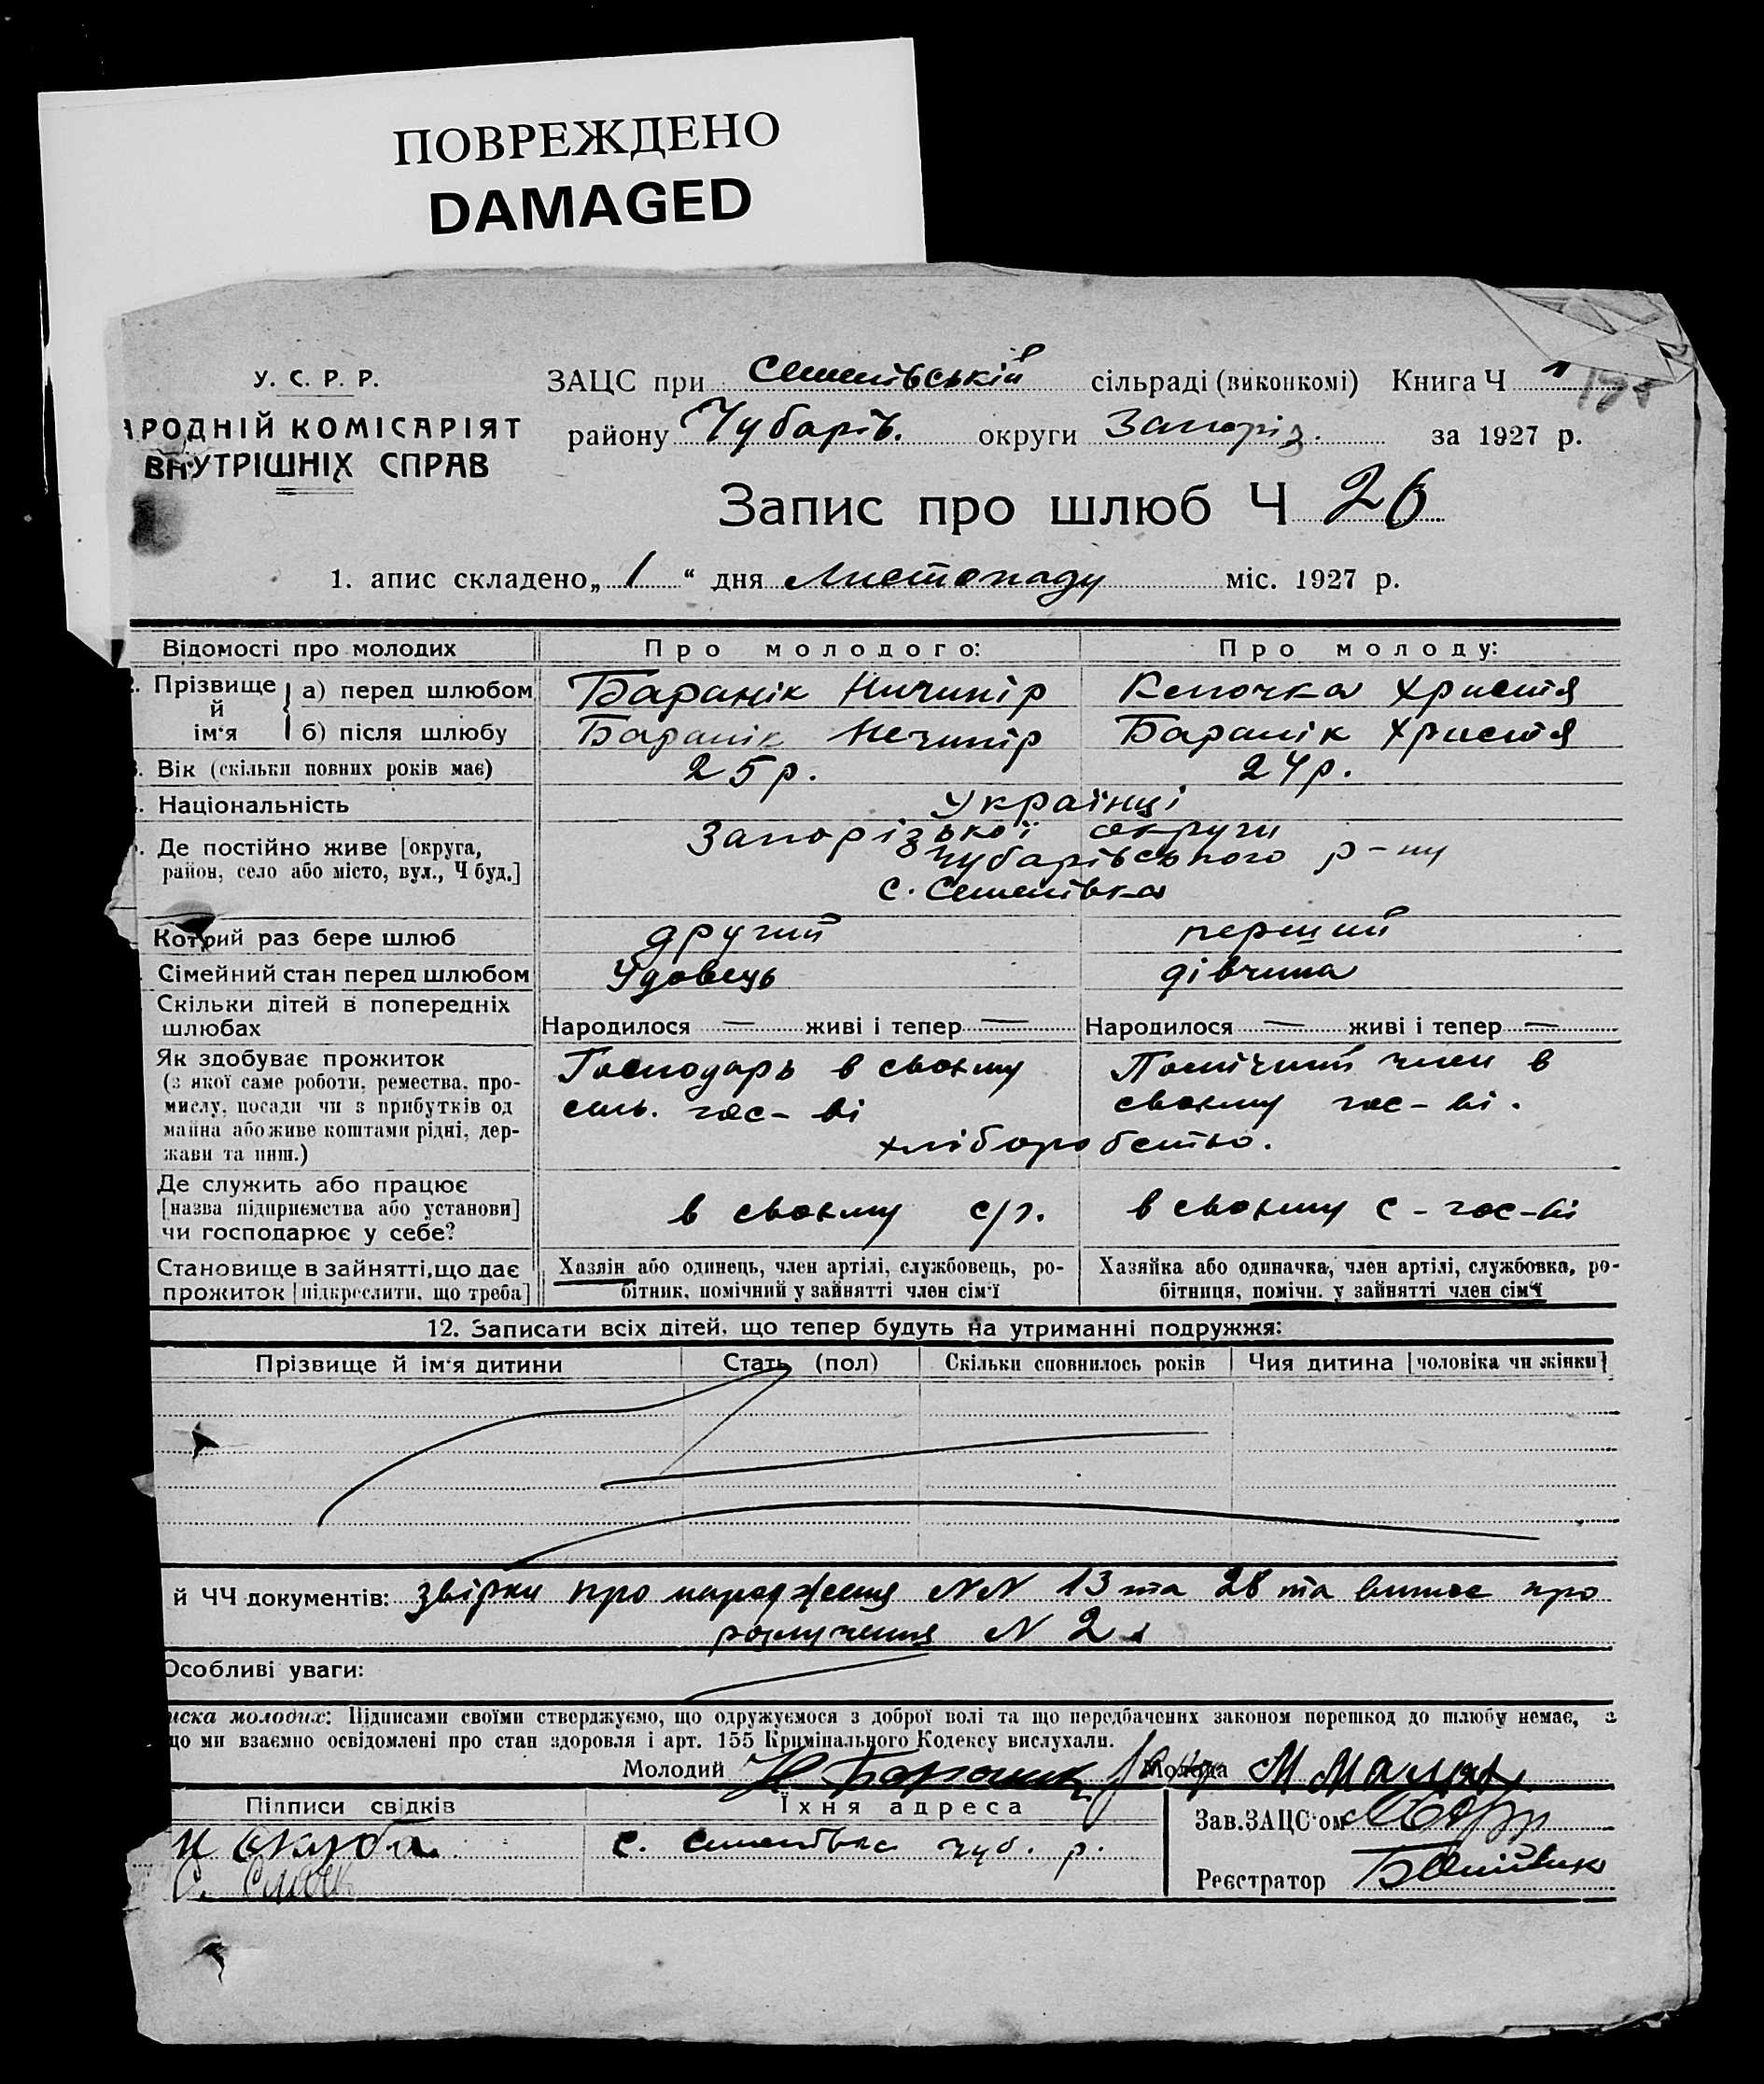 ПОВРЕЖДЕНО
DAMAGED
У. С. Р. Р.
АРОДНІЙ КОМІСАРІЯТ
ВНУТРІШНІХ СПРАВ
ЗАЦС при Семенівській сільраді (виконкомі) Книга Ч 1
району Чубарів. округи Запоріз. за 1927 р.
Запис про шлюб Ч 26
1. апис складено „ 1 “ дня Листопаду міс. 1927 р.
Відомості про молодих Про молодого: Про молоду:
. Прізвище й ім'я а) перед шлюбом Баранік Ничипір Христя
б) після шлюбу Баранік Нечипір Баранік Христя
. Вік (скільки повних років має) 25 р. 24 р.
. Національність Українці
. Де постійно живе [округа, район, село або місто, вул., Ч буд.] Запорізької округи
Чубарівського р-ну
с. Семенівка
Котрий раз бере шлюб другий перший
Сімейний стан перед шлюбом Удовець дівчина
Скільки дітей в попередніх шлюбах Народилося — живі і тепер — Народилося — живі і тепер —
Як здобуває прожиток
(з якої саме роботи, ремества, про-
мислу, посади чи з прибутків од
майна або живе коштами рідні, дер-
жави та инш.)
Господарь в своєму
сель. гос-ві
Помічний член в
своєму гос-ві.
хліборобство.
Де служить або працює
[назва підприємства або установи]
чи господарює у себе?
в своєму с/г. в своєму с-гос-ві
Становище в зайнятті, що дає
прожиток [підкреслити, що треба]
Хазяін або одинець, член артілі, службовець, ро-
бітник, помічний у зайнятті член сім'ї
Хазяйка або одиначка, член артілі, службовка, ро-
бітниця, помічн. у зайнятті член сім'ї
12. Записати всіх дітей, що тепер будуть на утриманні подружжя:
Прізвище й ім'я дитини Стать (пол) Скільки сповнилось років Чия дитина [чоловіка чи жінки]
й ЧЧ документів: звірки про народження NN 13 та 28 та випис про
розлучення N 2
Особливі уваги:
иска молодих: Підписами своїми стверджуємо, що одружуємося з доброї волі та що передбачених законом перешкод до шлюбу немає, а
що ми взаємно освідомлені про стан здоровля і арт. 155 Кримінального Кодексу вислухали.
Молодий Н Бараник Молода
Підписи свідків Їхня адреса Зав. ЗАЦС'ом
с. Семенівка чуб. р.
Реєстратор